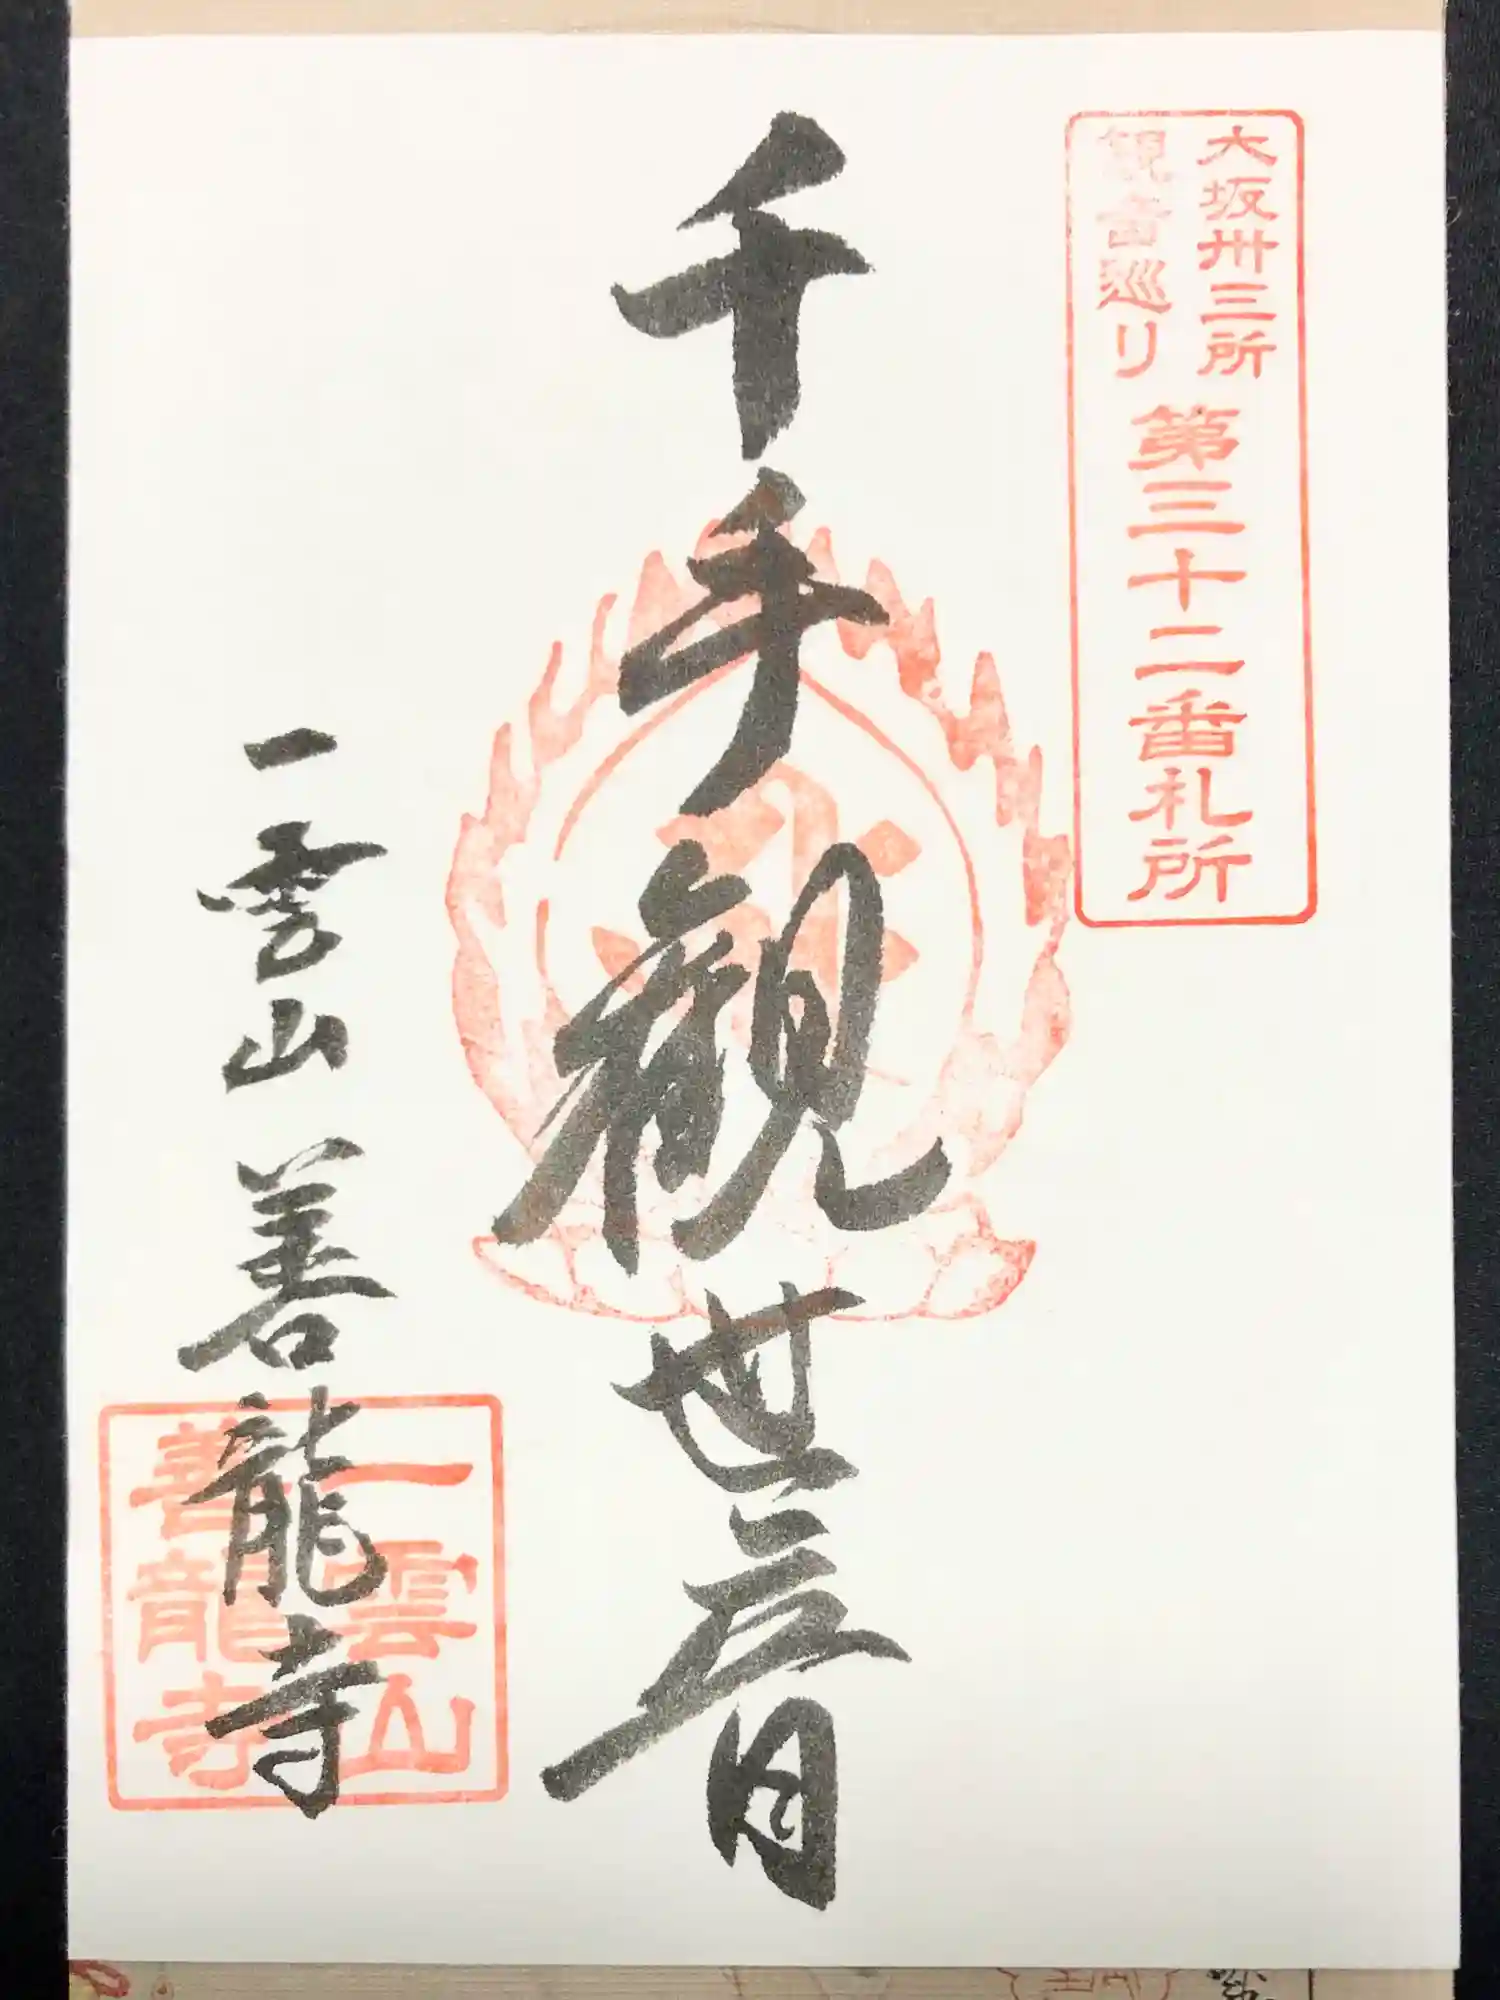 大坂卅三所
観音巡り
第三十二番札所
千手観世音
一雲山 善龍寺
一雲山
善龍寺